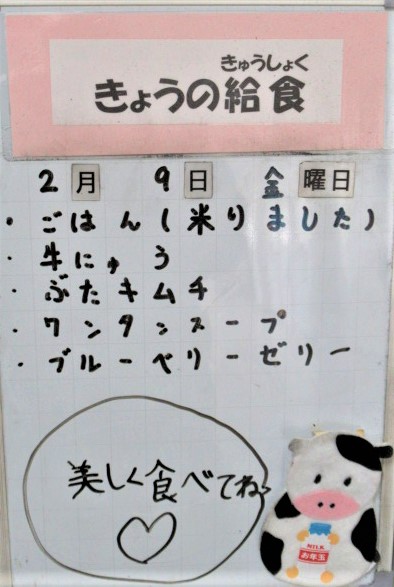 きゅうしょく
きょうの給食
2月 9日 金曜日
・ごはん(米りました)
・牛にゅう
・ぶたキムチ
・ワンタンスープ
・ブルーベリーゼリー
美しく食べてね♡
MILK
お年玉